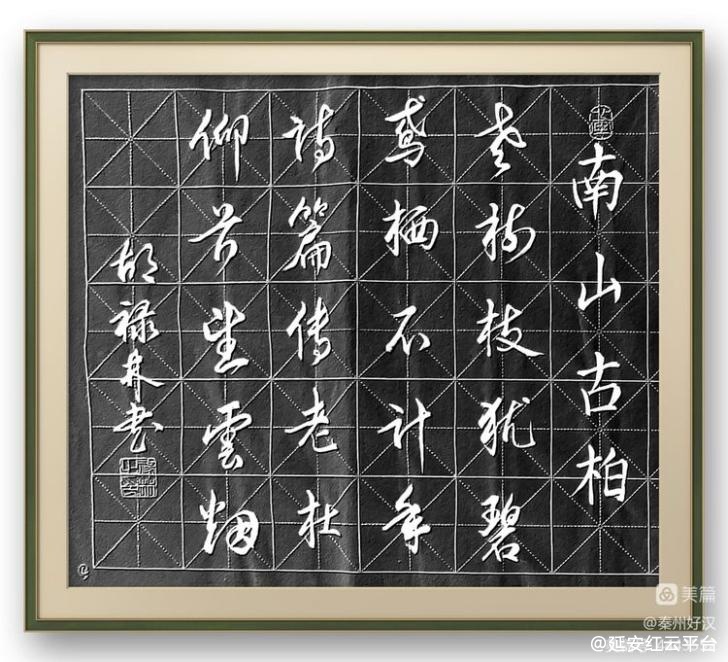 南山古柏
老树枝犹碧
鸢栖不计年
诗篇传老杜
仰首望雲烟
胡禄林书
美篇
@秦州好汉
@延安红云平台